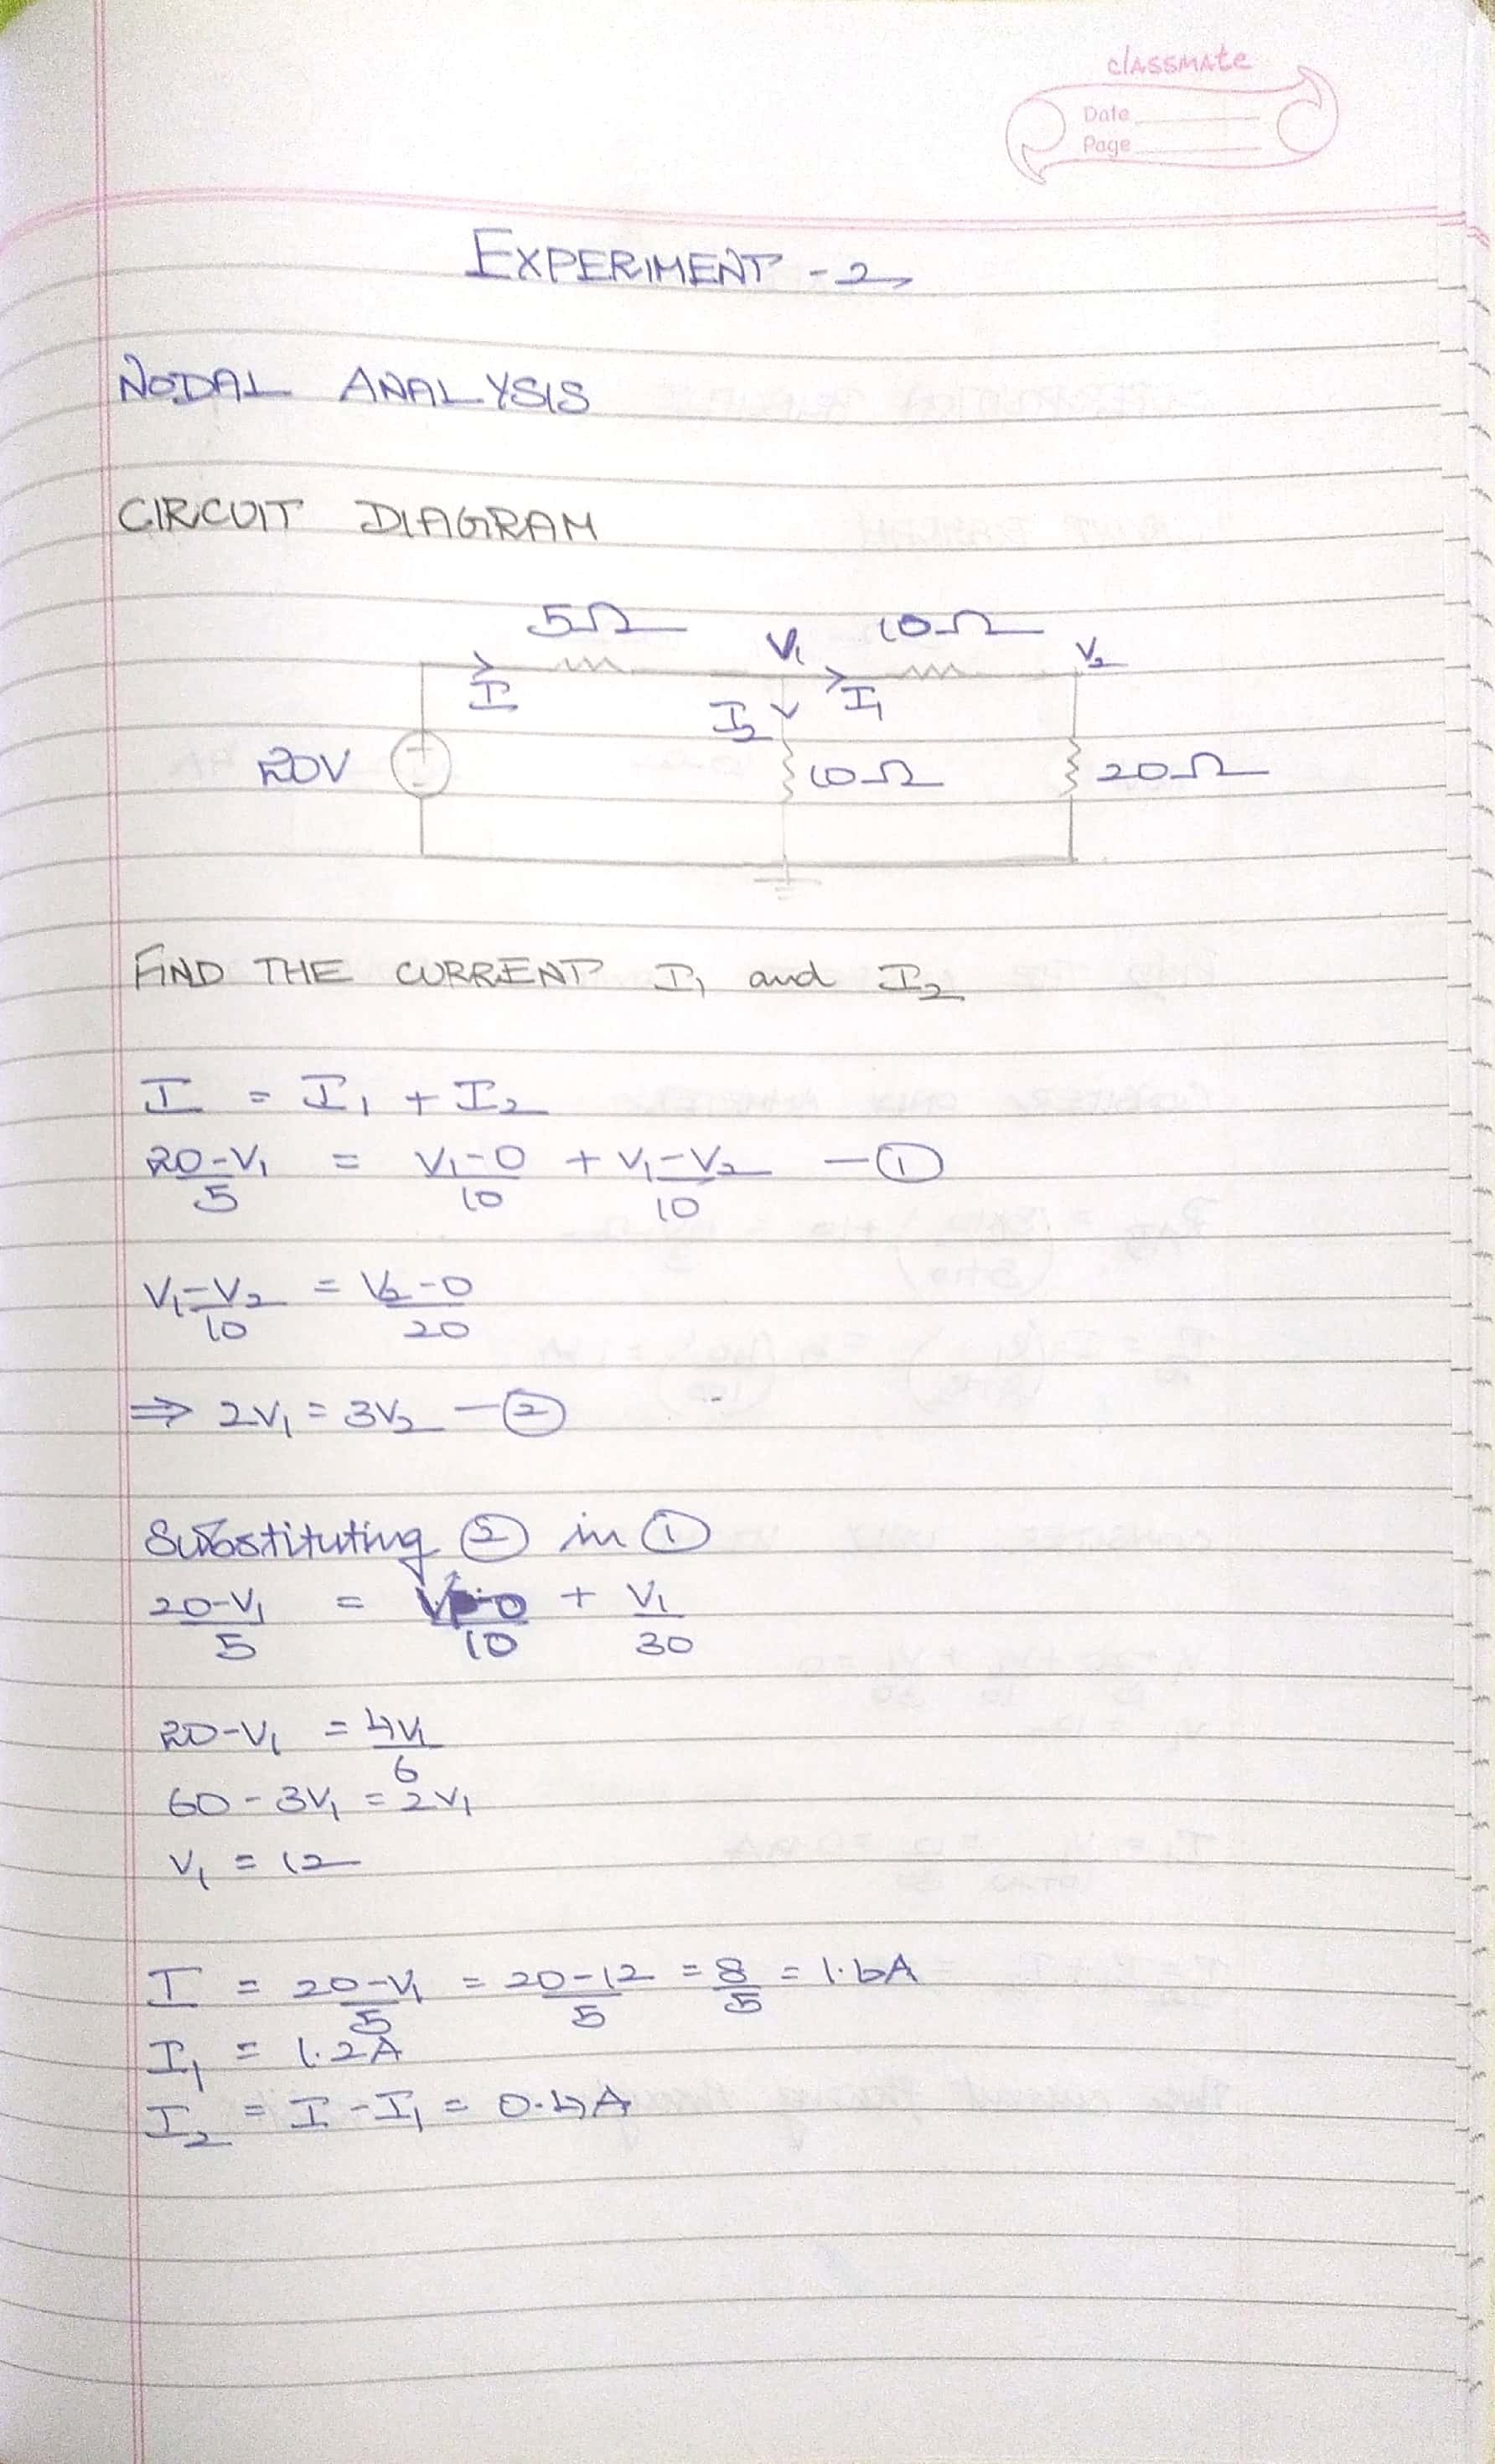 classmate
Date
Page
EXPERIMENT - 2
NODAL ANALYSIS
CIRCUIT DIAGRAM
5Ω V₁ 10Ω V₂
I I₂ I₁
20V 10Ω 20Ω
FIND THE CURRENT I₁ and I₂
I = I₁ + I₂
(20-V₁)/5 = (V₁-0)/10 + (V₁-V₂)/10 — ①
(V₁-V₂)/10 = (V₂-0)/20
⇒ 2V₁ = 3V₂ — ②
Substituting ② in ①
(20-V₁)/5 = /10 + V₁/30
20-V₁ = 4V₁/6
60 - 3V₁ = 2V₁
V₁ = 12
I = (20-V₁)/5 = (20-12)/5 = 8/5 = 1.6A
I₁ = 1.2A
I₂ = I - I₁ = 0.4A